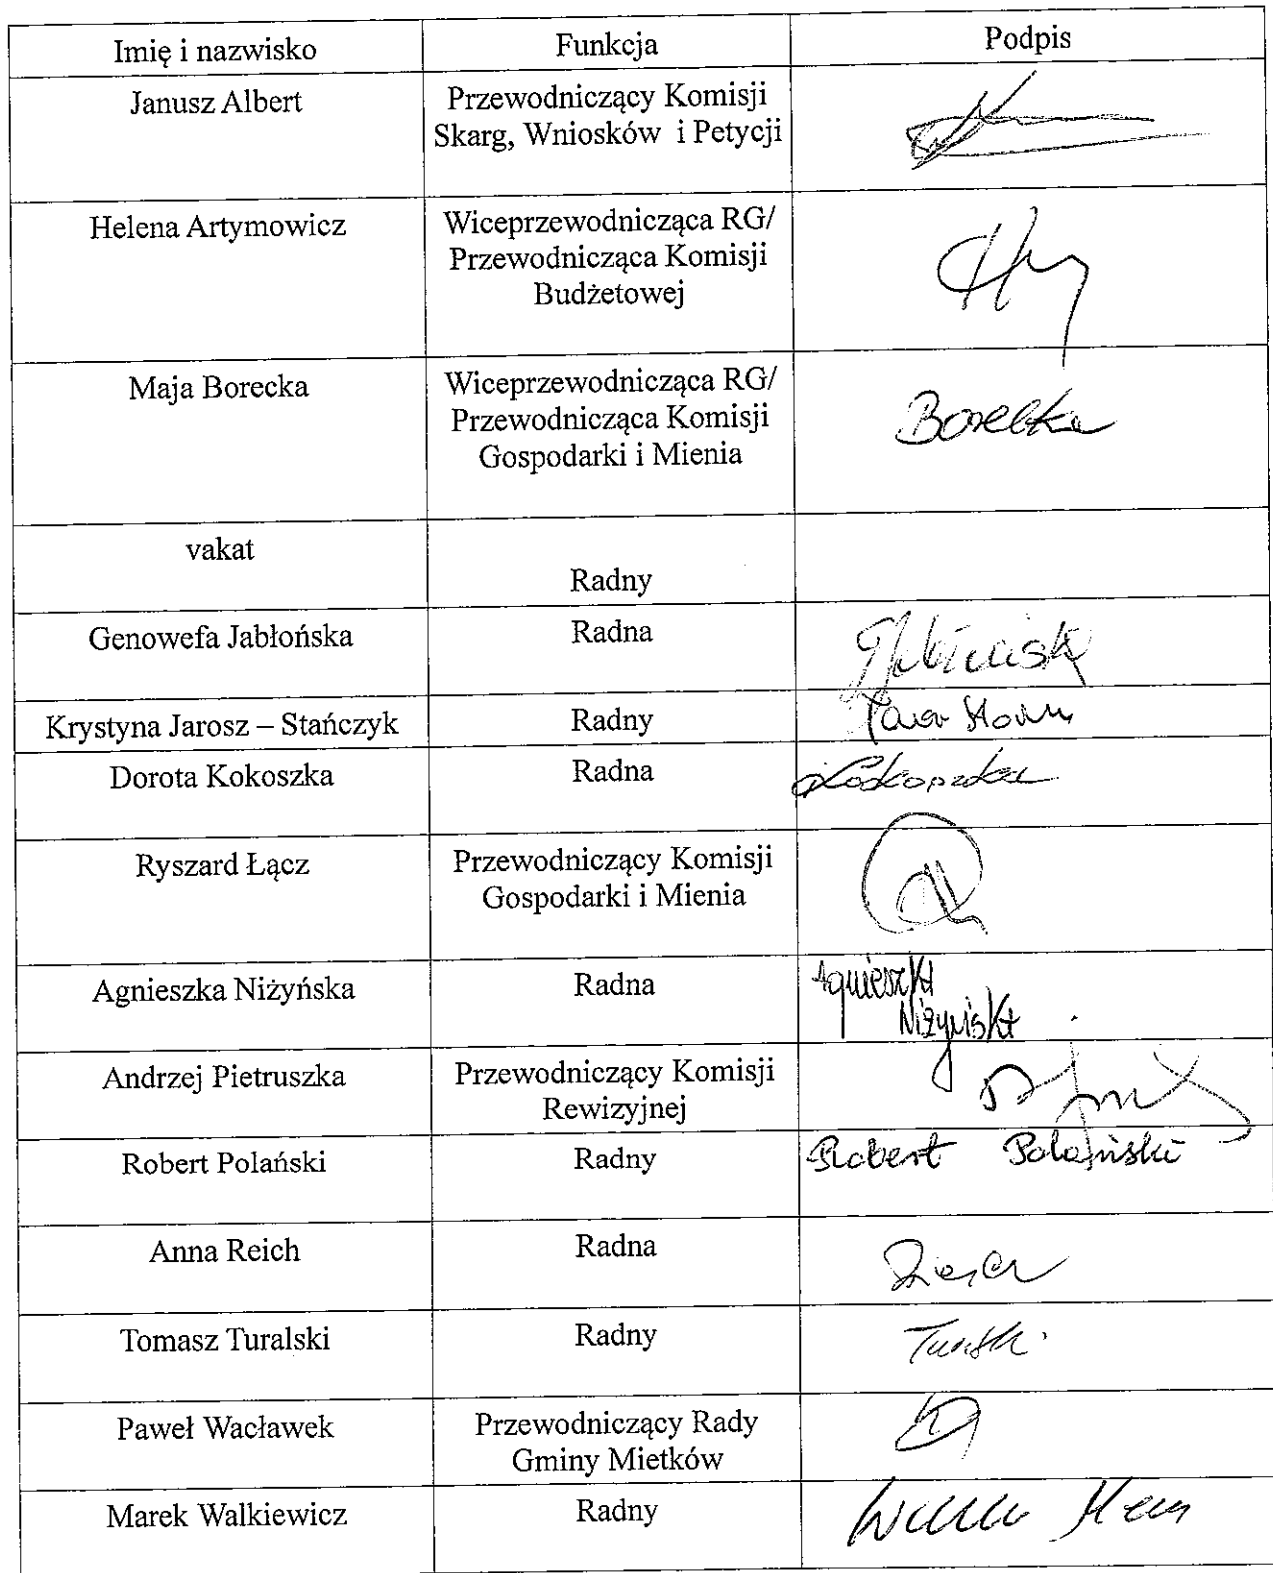 Imię i nazwisko Funkcja Podpis
Janusz Albert Przewodniczący Komisji
Skarg, Wniosków i Petycji
Helena Artymowicz Wiceprzewodnicząca RG/
Przewodnicząca Komisji
Budżetowej
Maja Borecka Wiceprzewodnicząca RG/
Przewodnicząca Komisji Borecka
Gospodarki i Mienia
vakat
Radny
Genowefa Jabłońska Radna
Krystyna Jarosz – Stańczyk Radny
Dorota Kokoszka Radna
Ryszard Łącz Przewodniczący Komisji
Gospodarki i Mienia
Agnieszka Niżyńska Radna Agnieszka
Niżyńska
Andrzej Pietruszka Przewodniczący Komisji
Rewizyjnej
Robert Polański Radny Robert Polański
Anna Reich Radna
Tomasz Turalski Radny
Paweł Wacławek Przewodniczący Rady
Gminy Mietków
Marek Walkiewicz Radny